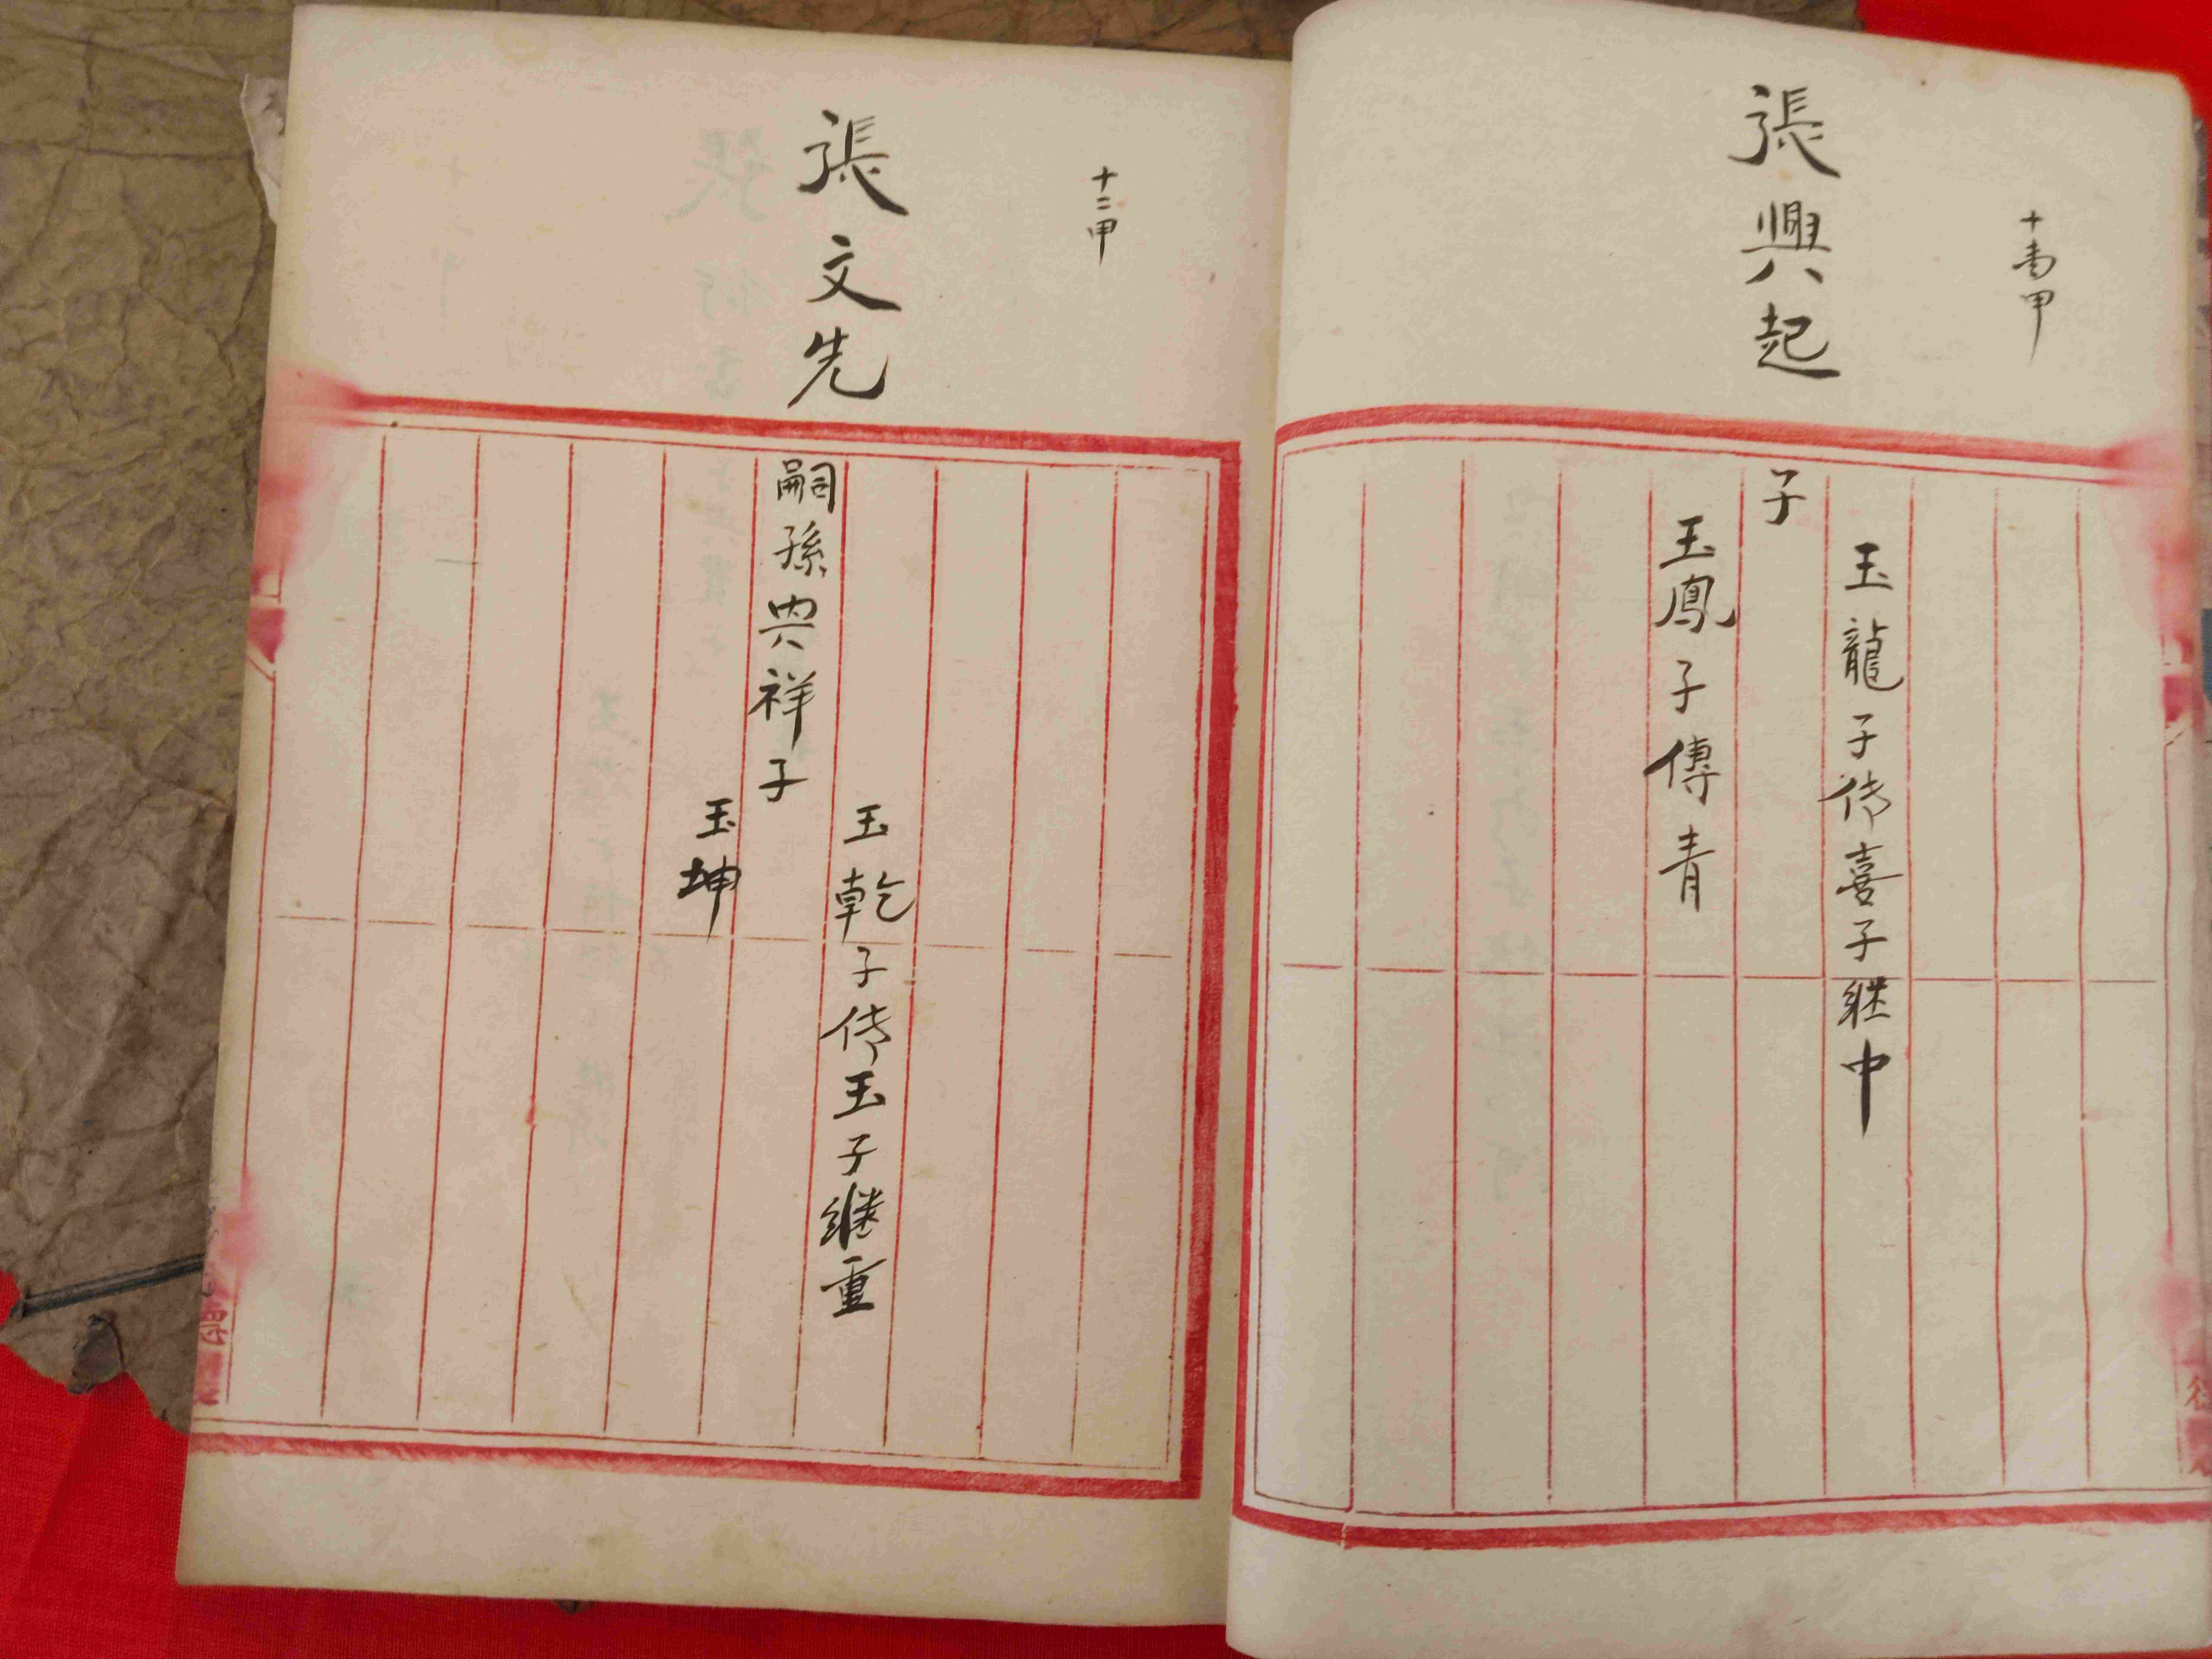 張興起
子
玉龍子传喜子継中
玉鳳子傳青
十二甲
張文先
嗣孫興祥子
玉乾子传玉子繼重
玉坤